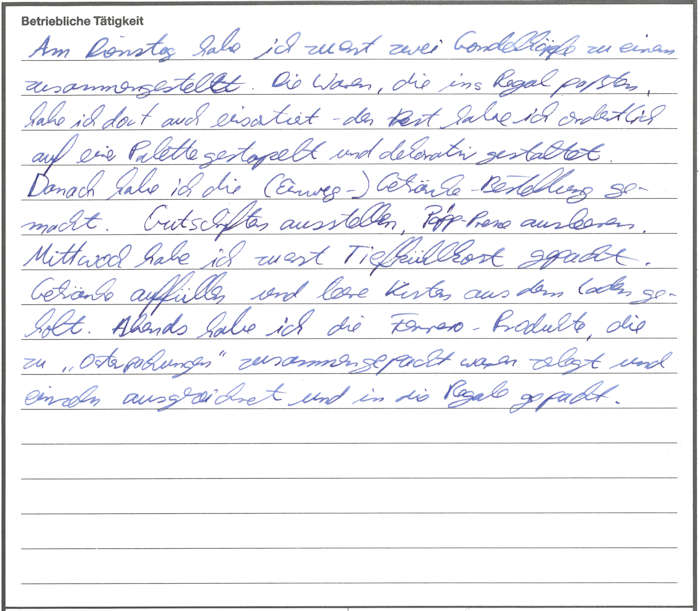 Betriebliche Tätigkeit
Am Dienstag habe ich zuerst zwei Gondelköpfe zu einem
zusammengestellt. Die Waren, die ins Regal paßten,
habe ich dort auch einsortiert - den Rest habe ich ordentlich
auf eine Palette gestapelt und dekorativ gestaltet.
Danach habe ich die (Einweg-) Getränke-Bestellung ge-
macht. Gutschriften ausstellen, Papp-Presse ausleeren.
Mittwoch habe ich zuerst Tiefkühlkost gepackt.
Getränke auffüllen und leere Kisten aus dem Laden ge-
holt. Abends habe ich die Ferrero-Produkte, die
zu „Osterpackungen" zusammengepackt waren zerlegt und
einzeln ausgezeichnet und in die Regale gepackt.